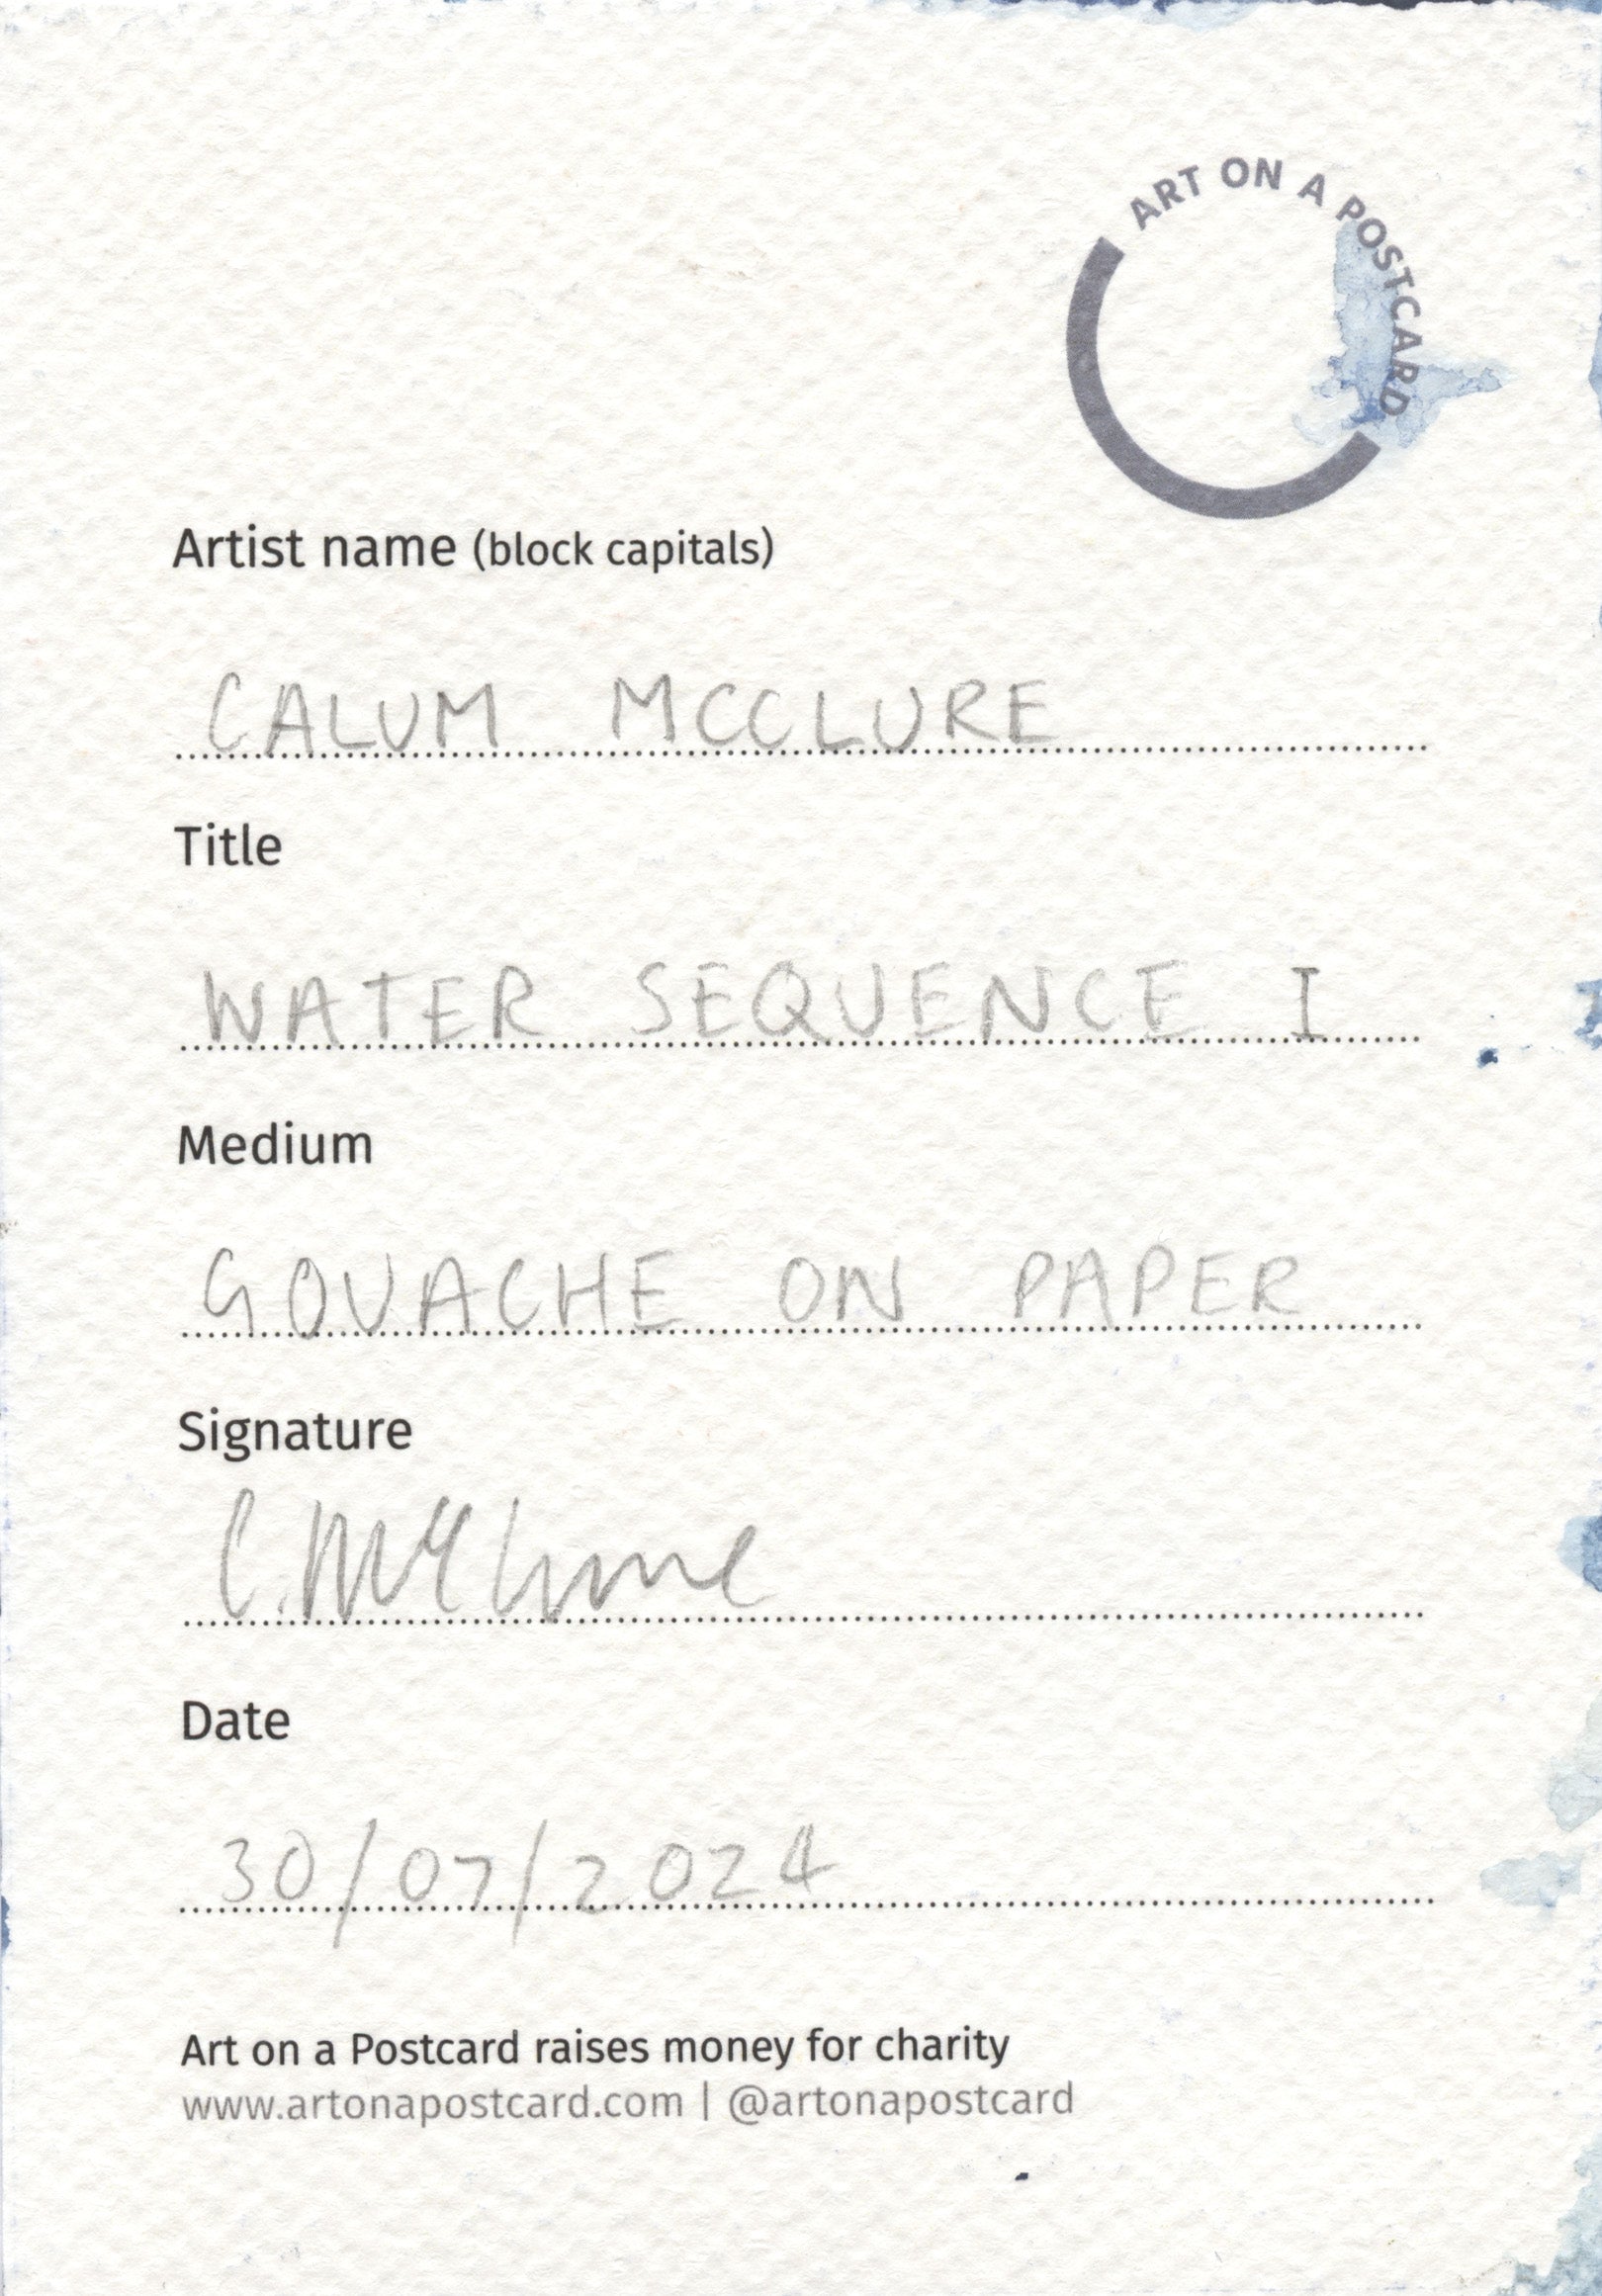 ART ON A POSTCARD
Artist name (block capitals)
CALUM MCCLURE
Title
WATER SEQUENCE I
Medium
GOUACHE ON PAPER
Signature
C. McClure
Date
30/07/2024
Art on a Postcard raises money for charity
www.artonapostcard.com | @artonapostcard